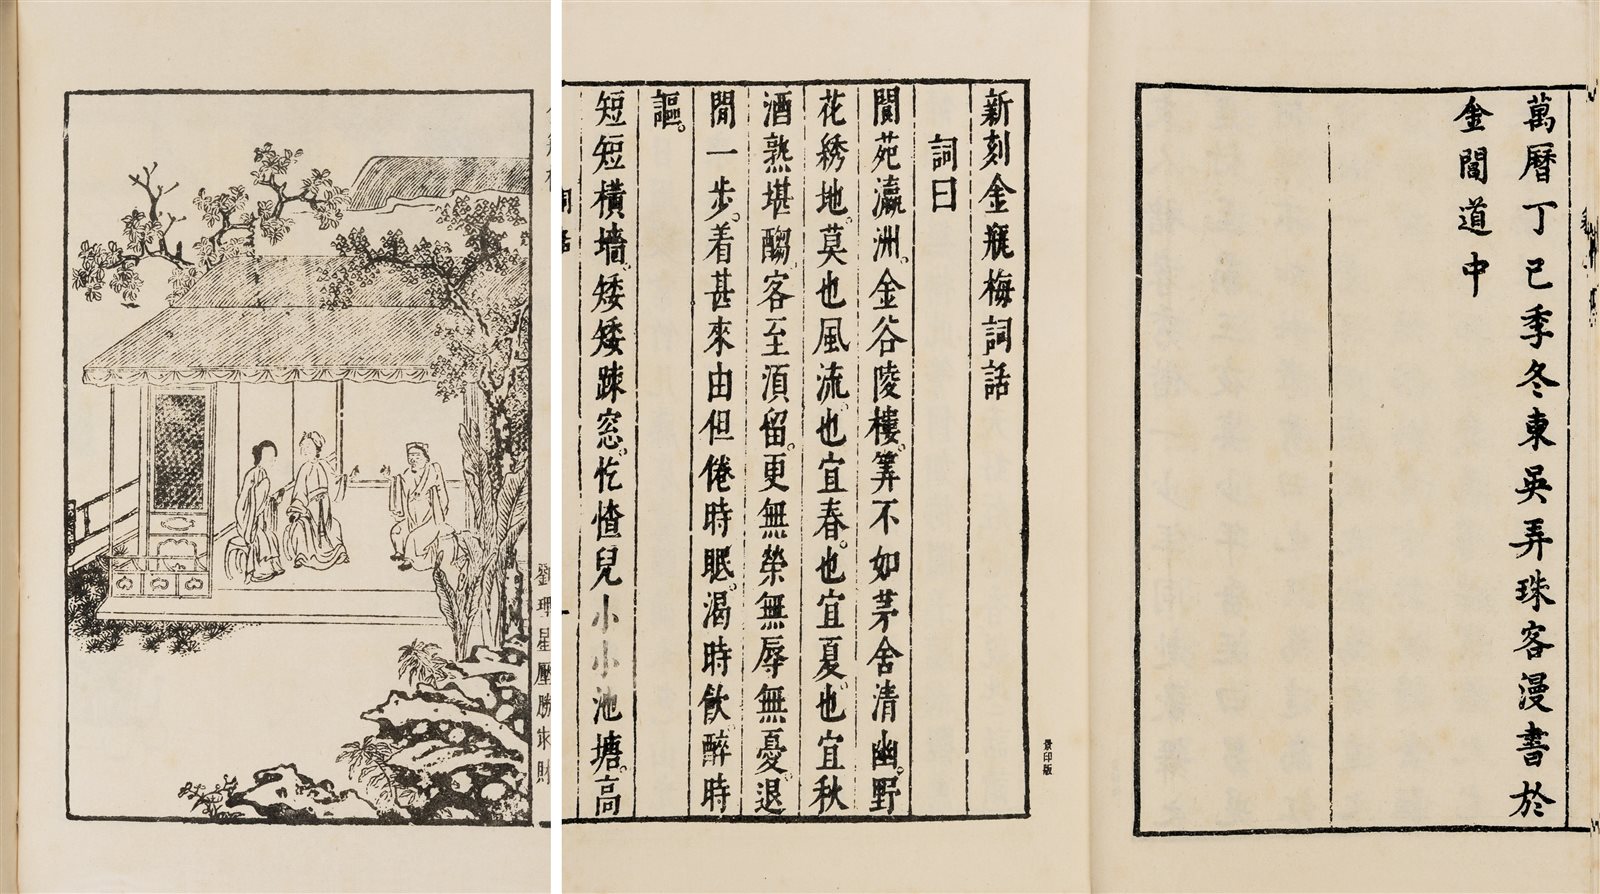 萬曆丁巳季冬東吳弄珠客漫書於
金閶道中
新刻金瓶梅詞話
詞曰
閬苑瀛洲。金谷陵樓。筭不如茅舍清幽。野
花綉地。莫也風流。也宜春。也宜夏。也宜秋
酒熟堪䣯。客至湏留。更無榮無辱無憂。退
閒一步。着甚來由但倦時眠。渴時飲。醉時
謳。
短短橫墻。矮矮踈窓。忔㤞兒小小池塘。高
景印版
詞話
劉理星壓勝求財